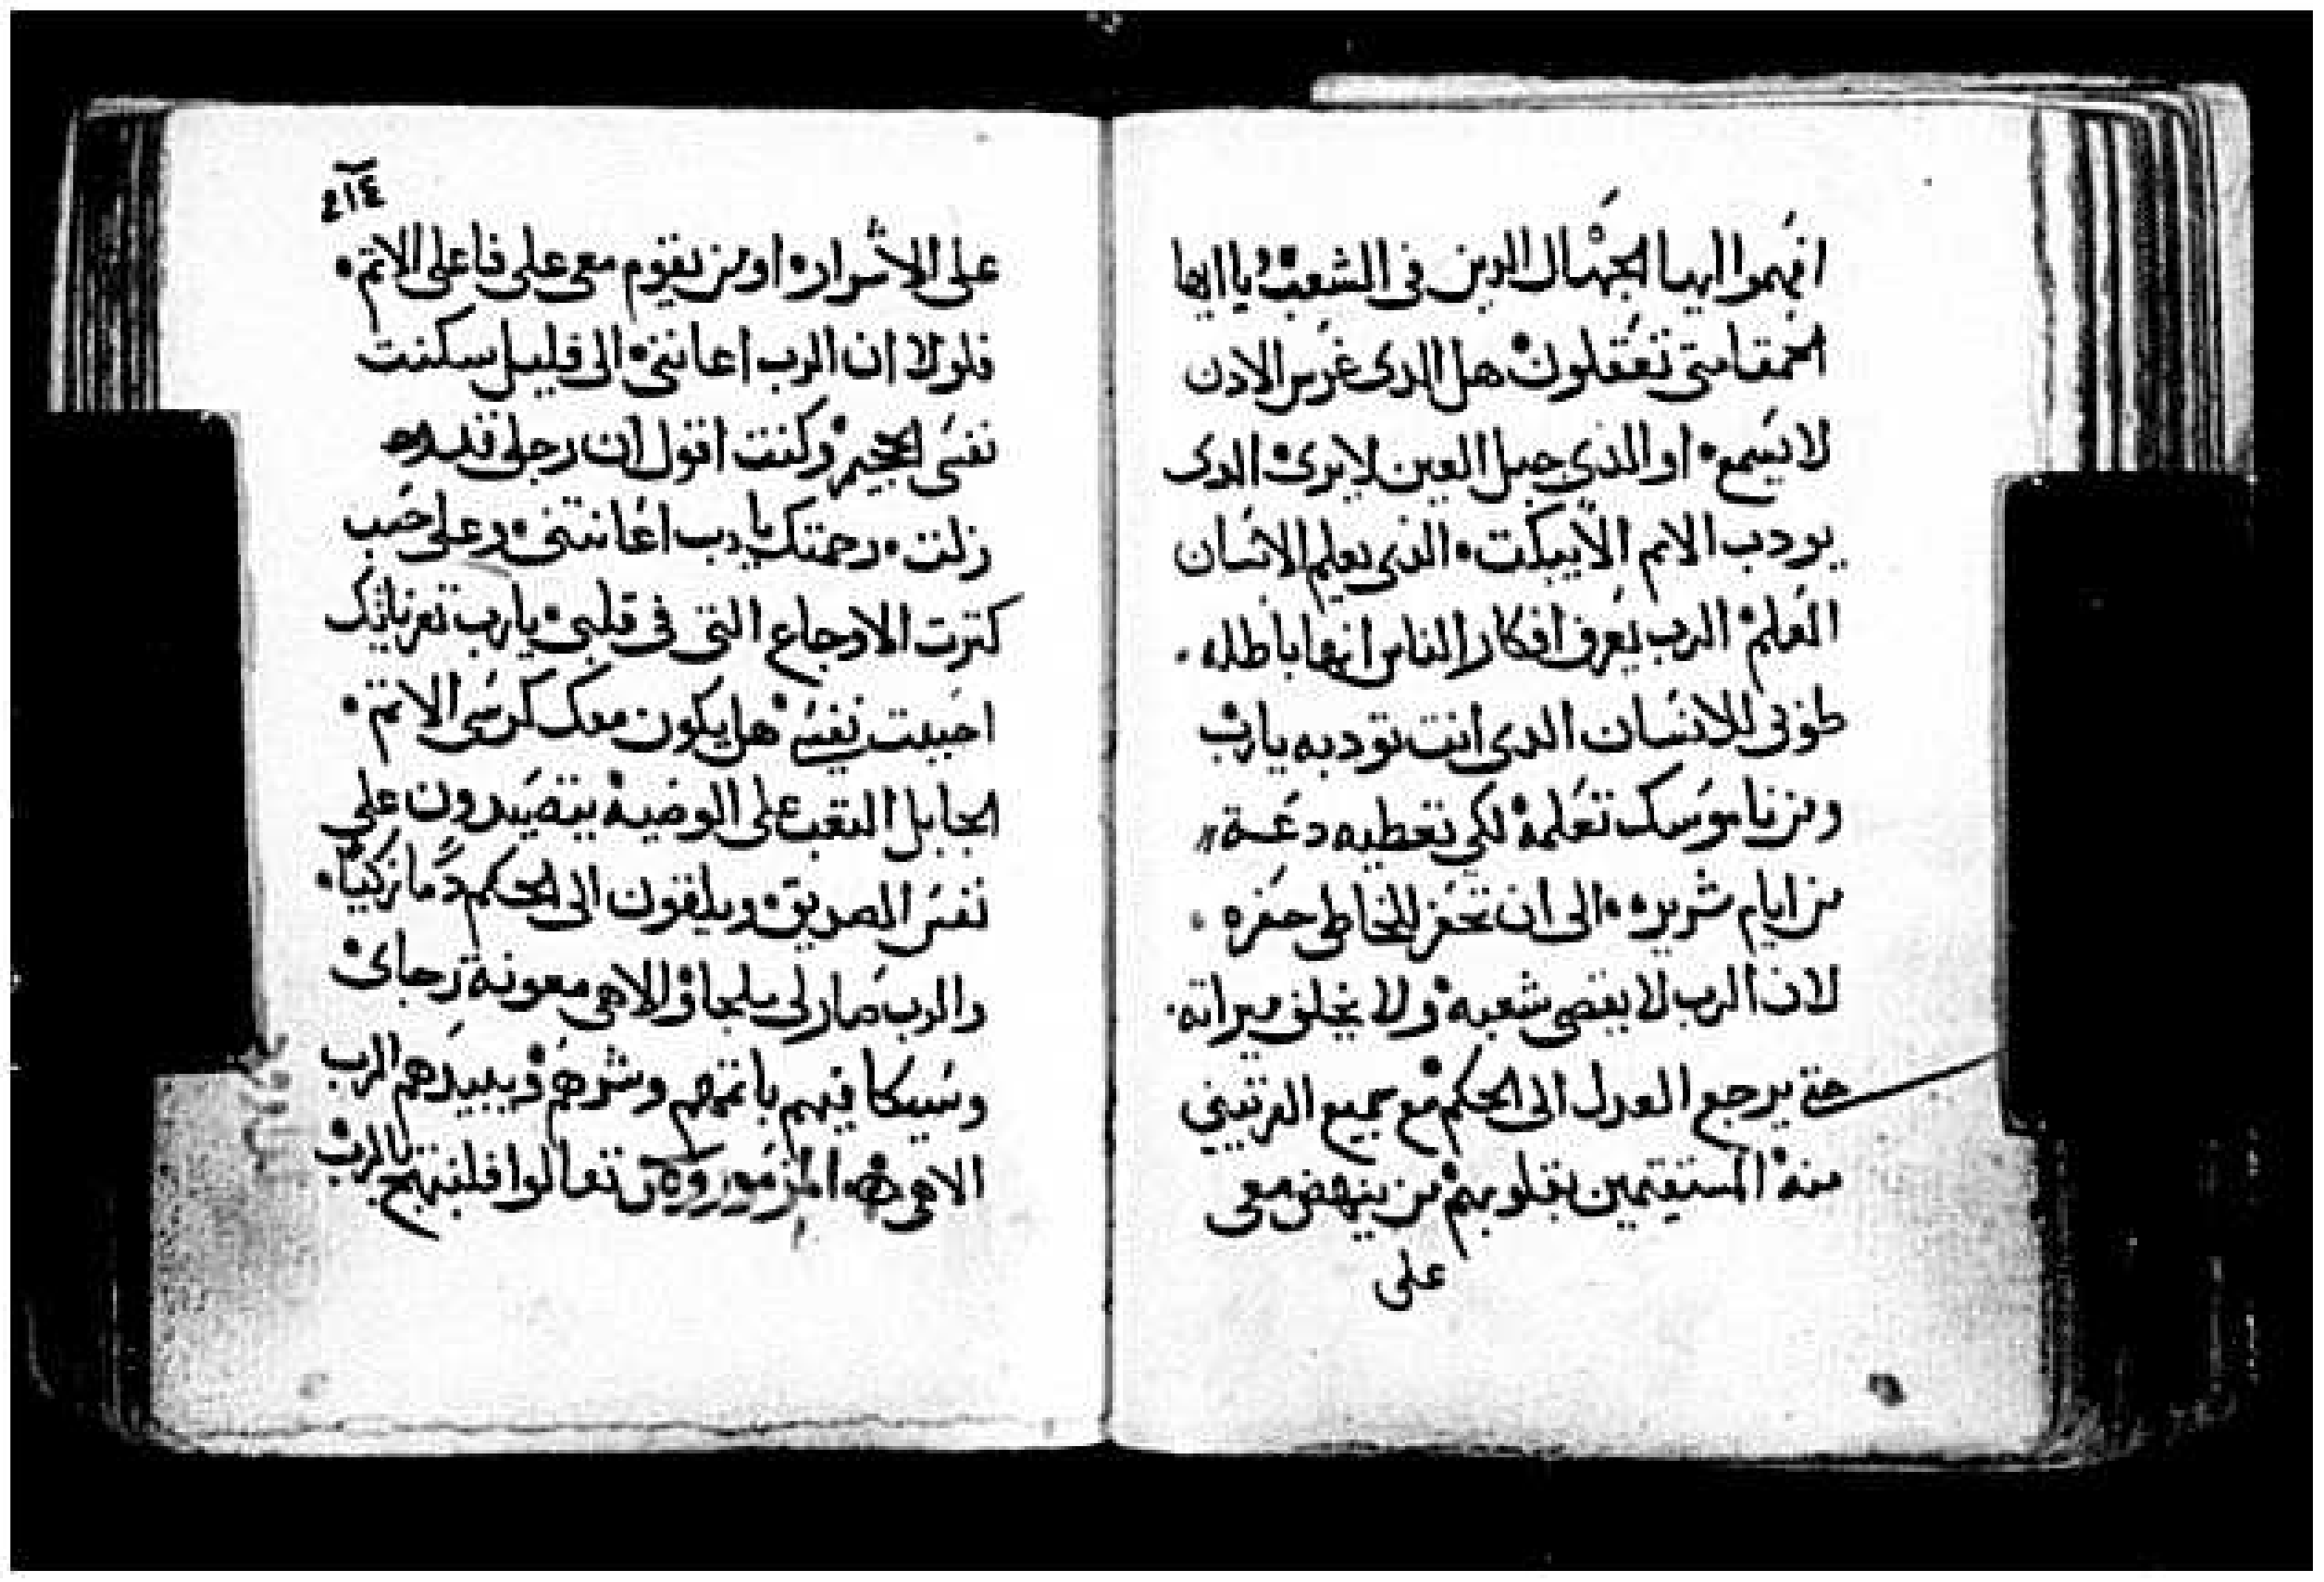 افهموا ايها الجهال الدين فى الشعب يا ايها
الحمقا متى تعقلون هل الدى غرس الادن
لا يسمع او الذي جبل العين لا يرى الدى
يودب الامم الا يبكت الذي يعلم الانسان
العلم الرب يعرف افكار الناس انها باطله
طوبى للانسان الدى انت تودبه يارب
ومن ناموسك تعلمه لكي تعطيه دعة
من ايام شريره الى ان تحفر للخاطى حفره
لان الرب لا يقصى شعبه ولا يخلف ميراته
حتى يرجع العدل الى الحكم مع جميع الدين
منه المستقيمين بقلوبهم من ينهض معى
على
٢١٤
على الاشرار او من يقوم معى على فاعلى الاتم
فلولا ان الرب اعاننى الى قليل سكنت
نفسى الجحيم وكنت اقول ان رجلى قد
زلت رحمتك يارب اعانتنى وعلى حسب
كترت الاوجاع التى فى قلبى يارب تعزياتك
احببت نفسى هل يكون معك كرسى الاتم
الجابل التعب على الوصية يتصيدون على
نفس الصديق ويلقون الى الحكم دما زكيا
والرب صار لى ملجا والاهى معونة رجاى
وسيكافيهم باتمهم وشرهم ويبيدهم الرب
الاهى المزمور تعالوا فلنبتهج بالرب